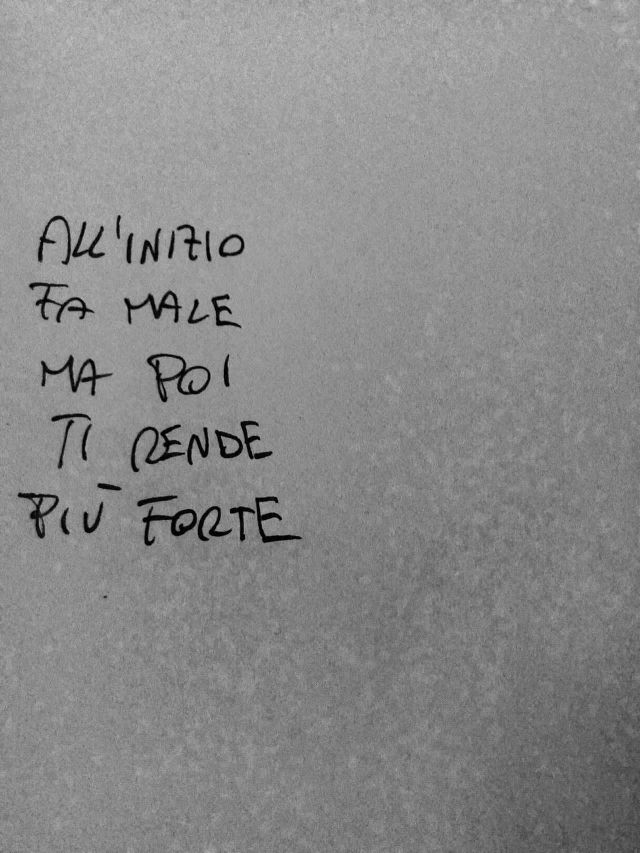 ALL'INIZIO
FA MALE
MA POI
TI RENDE
PIÙ FORTE